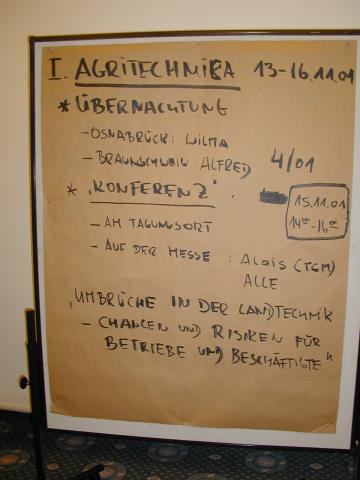 I. AGRITECHNIKA 13-16.11.01
* ÜBERNACHTUNG
- OSNABRÜCK: WILMA
- BRAUNSCHWEIG ALFRED 4/01
* "KONFERENZ":
15.11.01
14⁰⁰-16⁰⁰
- AM TAGUNGSORT
- AUF DER MESSE : ALOIS (TGM)
ALLE
"UMBRÜCHE IN DER LANDTECHNIK
- CHANCEN UND RISIKEN FÜR
BETRIEBE UND BESCHÄFTIGTE"